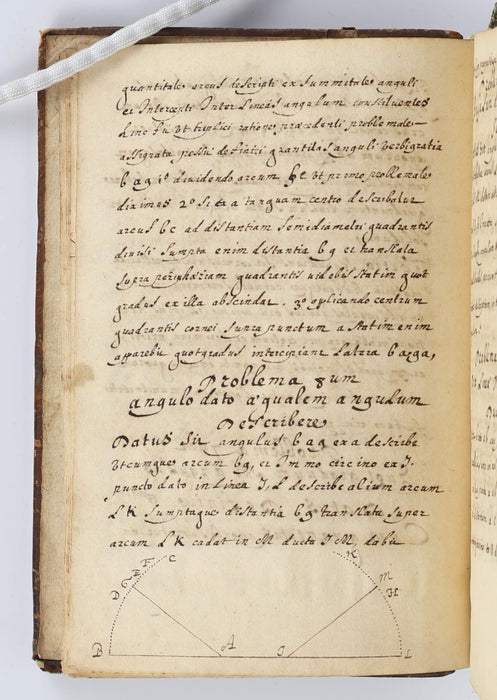 quantitate arcus descripti ex summitate anguli
et Intercepti Inter Lineas angulum constituentes
hinc fit Vt triplici ratione præcedenti problemate
assignata possit definiri quantitas anguli Verbigratia
b a g 1º dividendo arcum b c Vt primo problemate
diximus 2º si ex a tanquam centro describatur
arcus b c ad distantiam semediametri quadrantis
divisi sumpta enim distantia b g et translata
supra peripheriam quadrantis videbis statim quot
gradus ex illa abscindat. 3º aplicando centrum
quadrantis cornei supra punctum a statim enim
aparebit quot gradus intercipiant latera b a g,
Problema 8um
angulo dato æqualem angulum
Describere
Datus sit angulus b a g ex a describe
Vtcumque arcum b g, et Immo circino ex I.
puncto dato in linea I, L describe alium arcum
L K sumptaque distantia b g translata super
arcum L K cadat in M ducta I M, dabit
C F E G D K M H
B A O I